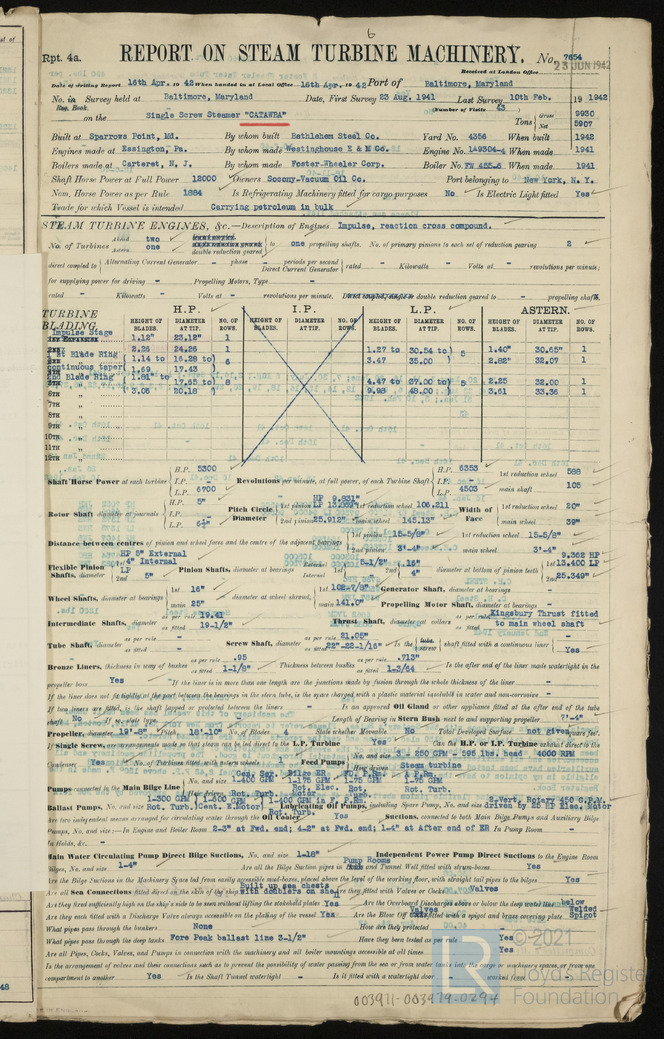 6
Rpt. 4a. REPORT ON STEAM TURBINE MACHINERY. No. 7654
23 JUN 1942
Received at London Office
Date of writing Report 16th Apr. 19 42 When handed in at Local Office 16th Apr. 19 42 Port of Baltimore, Maryland
No. in Survey held at Baltimore, Maryland Date, First Survey 23 Aug. 1941 Last Survey 10th Feb. 19 1942
Reg. Book. (Number of Visits 43)
on the Single Screw Steamer "CATAWBA" Tons Gross 9930
Net 5907
Built at Sparrows Point, Md. By whom built Bethlehem Steel Co. Yard No. 4356 When built 1942
Engines made at Essington, Pa. By whom made Westinghouse E & M Co. Engine No. 1A9304-4 When made 1941
Boilers made at Carteret, N. J. By whom made Foster-Wheeler Corp. Boiler No. FW 455-6 When made 1941
Shaft Horse Power at Full Power 12000 Owners Socony-Vacuum Oil Co. Port belonging to New York, N. Y.
Nom. Horse Power as per Rule 1884 Is Refrigerating Machinery fitted for cargo purposes No Is Electric Light fitted Yes
Trade for which Vessel is intended Carrying petroleum in bulk
STEAM TURBINE ENGINES, &c.—Description of Engines Impulse, reaction cross compound.
No. of Turbines Ahead two Astern one double reduction geared to one propelling shafts. No. of primary pinions to each set of reduction gearing 2
direct coupled to Alternating Current Generator - phase - periods per second
Direct Current Generator rated - Kilowatts - Volts at - revolutions per minute;
for supplying power for driving - Propelling Motors, Type -
rated - Kilowatts - Volts at - revolutions per minute. double reduction geared to - propelling shafts.
TURBINE BLADING. H.P. I.P. L.P. ASTERN.
HEIGHT OF BLADES. DIAMETER AT TIP. NO. OF ROWS. HEIGHT OF BLADES. DIAMETER AT TIP. NO. OF ROWS. HEIGHT OF BLADES. DIAMETER AT TIP. NO. OF ROWS. HEIGHT OF BLADES. DIAMETER AT TIP. NO. OF ROWS.
Impulse Stage 1.12" 23.12" 1
2.26 24.26 1 1.40" 30.65" 1
1st Blade Ring 1.14 to 16.28 to) 6 1.27 to 30.54 to) 5 2.82" 32.07 1
continuous taper) 1.69 17.43 3.47 35.00
2nd Blade Ring 1.81 to 17.65 to) 8 4.47 to 37.00 to) 5 2.25 32.00 1
6TH 3.06 20.18 9.98 48.00 3.61 33.36 1
7TH
8TH
9TH
10TH
11TH
12TH
Shaft Horse Power at each turbine H.P. 5300 I.P. - L.P. 6700 Revolutions per minute, at full power, of each Turbine Shaft H.P. 5353 I.P. - L.P. 4503 1st reduction wheel 588 main shaft 105
Rotor Shaft diameter at journals H.P. 5" I.P. - L.P. Pitch Circle Diameter HP 9.831" 1st pinion LP 13.069" 1st reduction wheel 106.211 2nd pinion 25.912" main wheel 145.13" Width of Face 1st reduction wheel 20" main wheel 39"
Distance between centres of pinion and wheel faces and the centre of the adjacent bearings 1st pinion 15-5/8" 1st reduction wheel 15-5/8"
2nd pinion 3'-4" main wheel 3'-4"
HP 5" External
Flexible Pinion Shafts, diameter 1st 4" Internal LP 2nd 5" Pinion Shafts, diameter at bearings External 5-1/2" Internal 4" 1st 16" diameter at bottom of pinion teeth 9.362 HP 1st 13.400 LP 2nd 25.349"
Wheel Shafts, diameter at bearings 1st 16" main 25" diameter at wheel shroud, 1st 102-7/8" main 141.0" Generator Shaft, diameter at bearings -
Propelling Motor Shaft, diameter at bearings -
Intermediate Shafts, diameter as per rule 19.41 as fitted 19-1/8" Thrust Shaft, diameter at collars Kingsbury Thrust fitted to main wheel shaft
Tube Shaft, diameter as per rule - as fitted - Screw Shaft, diameter as per rule 21.05" as fitted 22"-22-1/16" Is the screw shaft fitted with a continuous liner Yes
Bronze Liners, thickness in way of bushes as per rule .95 as fitted 1-1/8" Thickness between bushes as per rule .713" as fitted 1-3/64 Is the after end of the liner made watertight in the
propeller boss Yes If the liner is in more than one length are the junctions made by fusion through the whole thickness of the liner -
If the liner does not fit tightly at the part between the bearings in the stern tube, is the space charged with a plastic material insoluble in water and non-corrosive -
If two liners are fitted, is the shaft lapped or protected between the liners - Is an approved Oil Gland or other appliance fitted at the after end of the tube
shaft No If so, state type - Length of Bearing in Stern Bush next to and supporting propeller 7'-4"
Propeller, diameter 19'-8" Pitch 18'-10" No. of Blades 4 State whether Moveable No Total Developed Surface not given square feet.
If Single Screw, are arrangements made so that steam can be led direct to the L.P. Turbine Yes Can the H.P. or L.P. Turbine exhaust direct to the
Condenser Yes No. of Turbines fitted with astern wheels 1 Feed Pumps No. and size 3 - 250 GPM - 595 lbs. head 4000 RPM
How driven Steam turbine
Pumps connected to the Main Bilge Line No. and size 1-400 GPM 1-175 GPM 1-75 GPM 1-75 GPM
How driven Rot. Turb. Rot. Elec. Motor Rot. Turb. Rot. Turb.
Ballast Pumps, No. and size 1-300 GPM 1-600 GPM 1-400 GPM in F. P.Rm. Lubricating Oil Pumps, including Spare Pump, No. and size 2-Vert. Rotary 450 G.P.M. driven by 25 HP Elec. Motor
Are two independent means arranged for circulating water through the Oil Cooler Yes Suctions, connected to both Main Bilge Pumps and Auxiliary Bilge
Pumps, No. and size:—In Engine and Boiler Room 2-3" at Fwd. end; 4-2" at Fwd. end; 1-4" at After end of ER In Pump Room -
In Holds, &c. -
Main Water Circulating Pump Direct Bilge Suctions, No. and size 1-18" Independent Power Pump Direct Suctions to the Engine Room
Bilges, No. and size 1-4" Are all the Bilge Suction pipes in Pump Rooms and Tunnel Well fitted with strum-boxes Yes
Are the Bilge Suctions in the Machinery Space led from easily accessible mud-boxes, placed above the level of the working floor, with straight tail pipes to the bilges Yes
Are all Sea Connections fitted direct on the skin of the ship Built up sea chests with doublers on shell Are they fitted with Valves or Cocks Valves
Are they fixed sufficiently high on the ship's side to be seen without lifting the stokehold plates Yes Are the Overboard Discharges above or below the deep water line below
Are they each fitted with a Discharge Valve always accessible on the plating of the vessel Yes Are the Blow Off Valves fitted with a spigot and brass covering plate Welded Spigot
What pipes pass through the bunkers None How are they protected -
What pipes pass through the deep tanks Fore Peak ballast line 3-1/2" Have they been tested as per rule Yes
Are all Pipes, Cocks, Valves, and Pumps in connection with the machinery and all boiler mountings accessible at all times Yes
Is the arrangement of valves and their connections such as to prevent the possibility of water passing from the sea or from water tanks into the cargo or machinery spaces, or from one
compartment to another Yes Is the Shaft Tunnel watertight - Is it fitted with a watertight door - worked from -
003971-003979-0294
© 2021
Lloyd's Register
Foundation
48